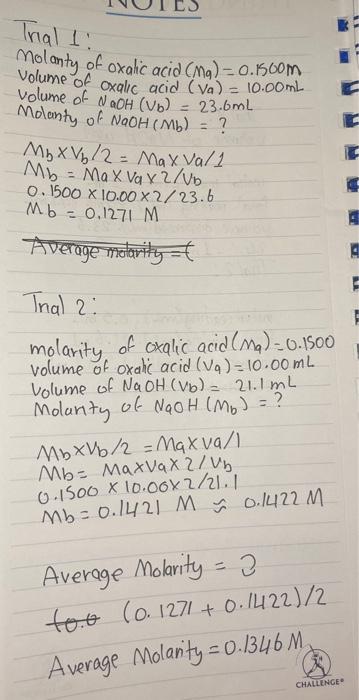 NOTES
Trial 1:
Molarity of oxalic acid (Ma) = 0.1500m
Volume of oxalic acid (Va) = 10.00mL
Volume of NaOH (Vb) = 23.6mL
Molarity of NaOH (Mb) = ?
Mb x Vb/2 = Ma x Va/1
Mb = Ma x Va x 2/Vb
0.1500 x 10.00 x 2/23.6
Mb = 0.1271 M
Average molarity = (
Trial 2:
molarity of oxalic acid (Ma) = 0.1500
volume of oxalic acid (Va) = 10.00mL
Volume of NaOH (Vb) = 21.1mL
Molarity of NaOH (Mb) = ?
Mb x Vb/2 = Ma x Va/1
Mb = Ma x Va x 2/Vb
0.1500 x 10.00 x 2/21.1
Mb = 0.1421 M ≈ 0.1422 M
Average Molarity = ?
(0.1271 + 0.1422)/2
Average Molarity = 0.1346 M
CHALLENGE